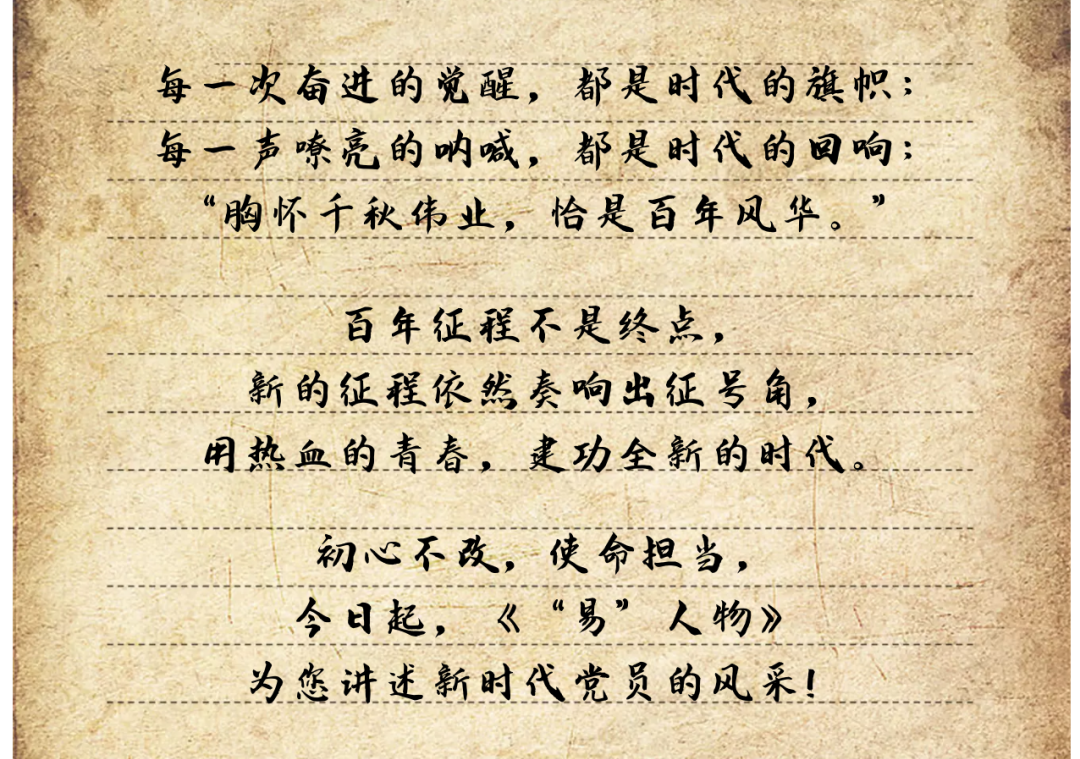 每一次奋进的觉醒，都是时代的旗帜；
每一声嘹亮的呐喊，都是时代的回响：
“胸怀千秋伟业，恰是百年风华。”
百年征程不是终点，
新的征程依然奏响出征号角，
用热血的青春，建功全新的时代。
初心不改，使命担当，
今日起，《“易”人物》
为您讲述新时代党员的风采！